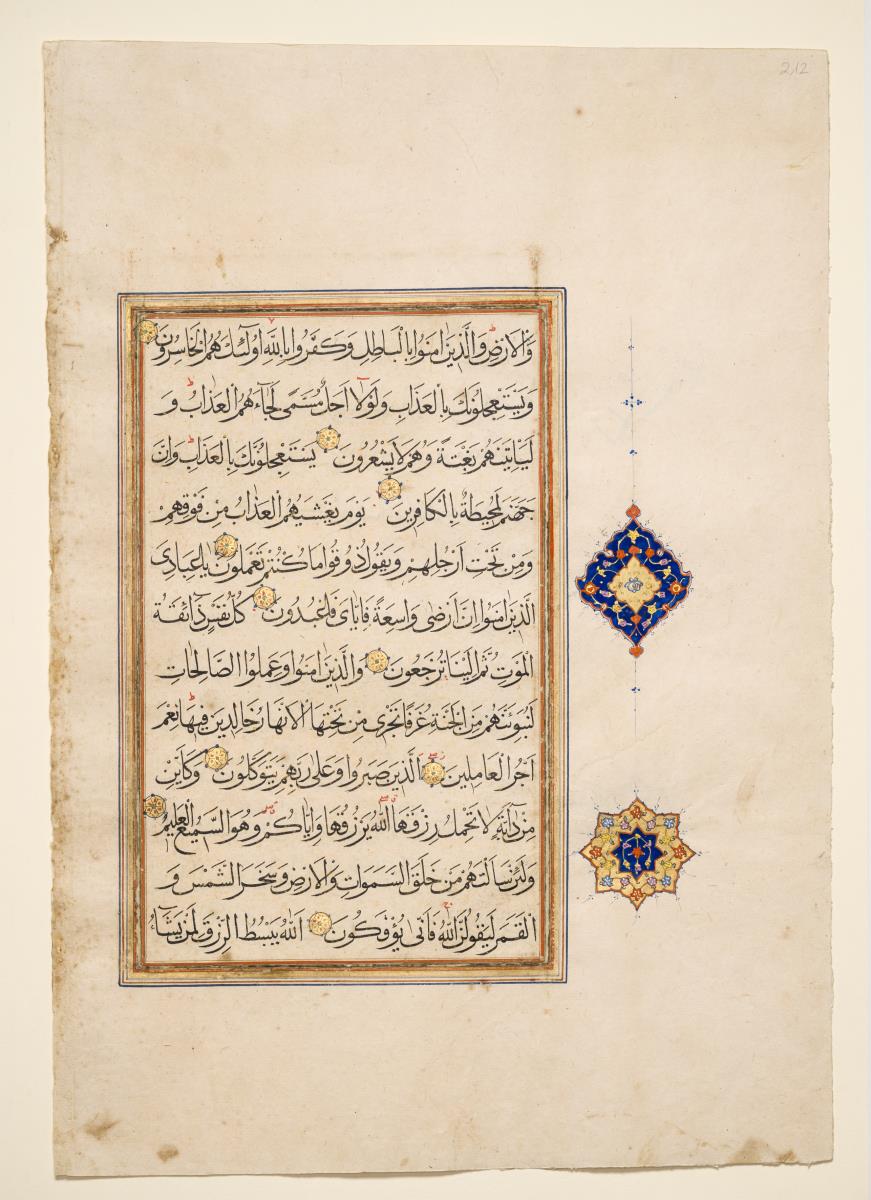 2,12
وَالْاَرْضِ وَالَّذِينَ اٰمَنُوا بِالْبَاطِلِ وَكَفَرُوا بِاللّٰهِ اُولٰئِكَ هُمُ الْخَاسِرُونَ
وَيَسْتَعْجِلُونَكَ بِالْعَذَابِ وَلَوْلَا اَجَلٌ مُسَمًّى لَجَاءَهُمُ الْعَذَابُ وَ
لَيَأْتِيَنَّهُمْ بَغْتَةً وَهُمْ لَا يَشْعُرُونَ يَسْتَعْجِلُونَكَ بِالْعَذَابِ وَاِنَّ
جَهَنَّمَ لَمُحِيطَةٌ بِالْكَافِرِينَ يَوْمَ يَغْشٰيهُمُ الْعَذَابُ مِنْ فَوْقِهِمْ
وَمِنْ تَحْتِ اَرْجُلِهِمْ وَيَقُولُ ذُوقُوا مَا كُنْتُمْ تَعْمَلُونَ يَا عِبَادِيَ
الَّذِينَ اٰمَنُوا اِنَّ اَرْضِي وَاسِعَةٌ فَاِيَّايَ فَاعْبُدُونِ كُلُّ نَفْسٍ ذَائِقَةُ
الْمَوْتِ ثُمَّ اِلَيْنَا تُرْجَعُونَ وَالَّذِينَ اٰمَنُوا وَعَمِلُوا الصَّالِحَاتِ
لَنُبَوِّئَنَّهُمْ مِنَ الْجَنَّةِ غُرَفًا تَجْرِي مِنْ تَحْتِهَا الْاَنْهَارُ خَالِدِينَ فِيهَا نِعْمَ
اَجْرُ الْعَامِلِينَ الَّذِينَ صَبَرُوا وَعَلٰى رَبِّهِمْ يَتَوَكَّلُونَ وَكَاَيِّنْ
مِنْ دَابَّةٍ لَا تَحْمِلُ رِزْقَهَا اللّٰهُ يَرْزُقُهَا وَاِيَّاكُمْ وَهُوَ السَّمِيعُ الْعَلِيمُ
وَلَئِنْ سَاَلْتَهُمْ مَنْ خَلَقَ السَّمٰوَاتِ وَالْاَرْضَ وَسَخَّرَ الشَّمْسَ وَ
الْقَمَرَ لَيَقُولُنَّ اللّٰهُ فَاَنّٰى يُؤْفَكُونَ اَللّٰهُ يَبْسُطُ الرِّزْقَ لِمَنْ يَشَاءُ